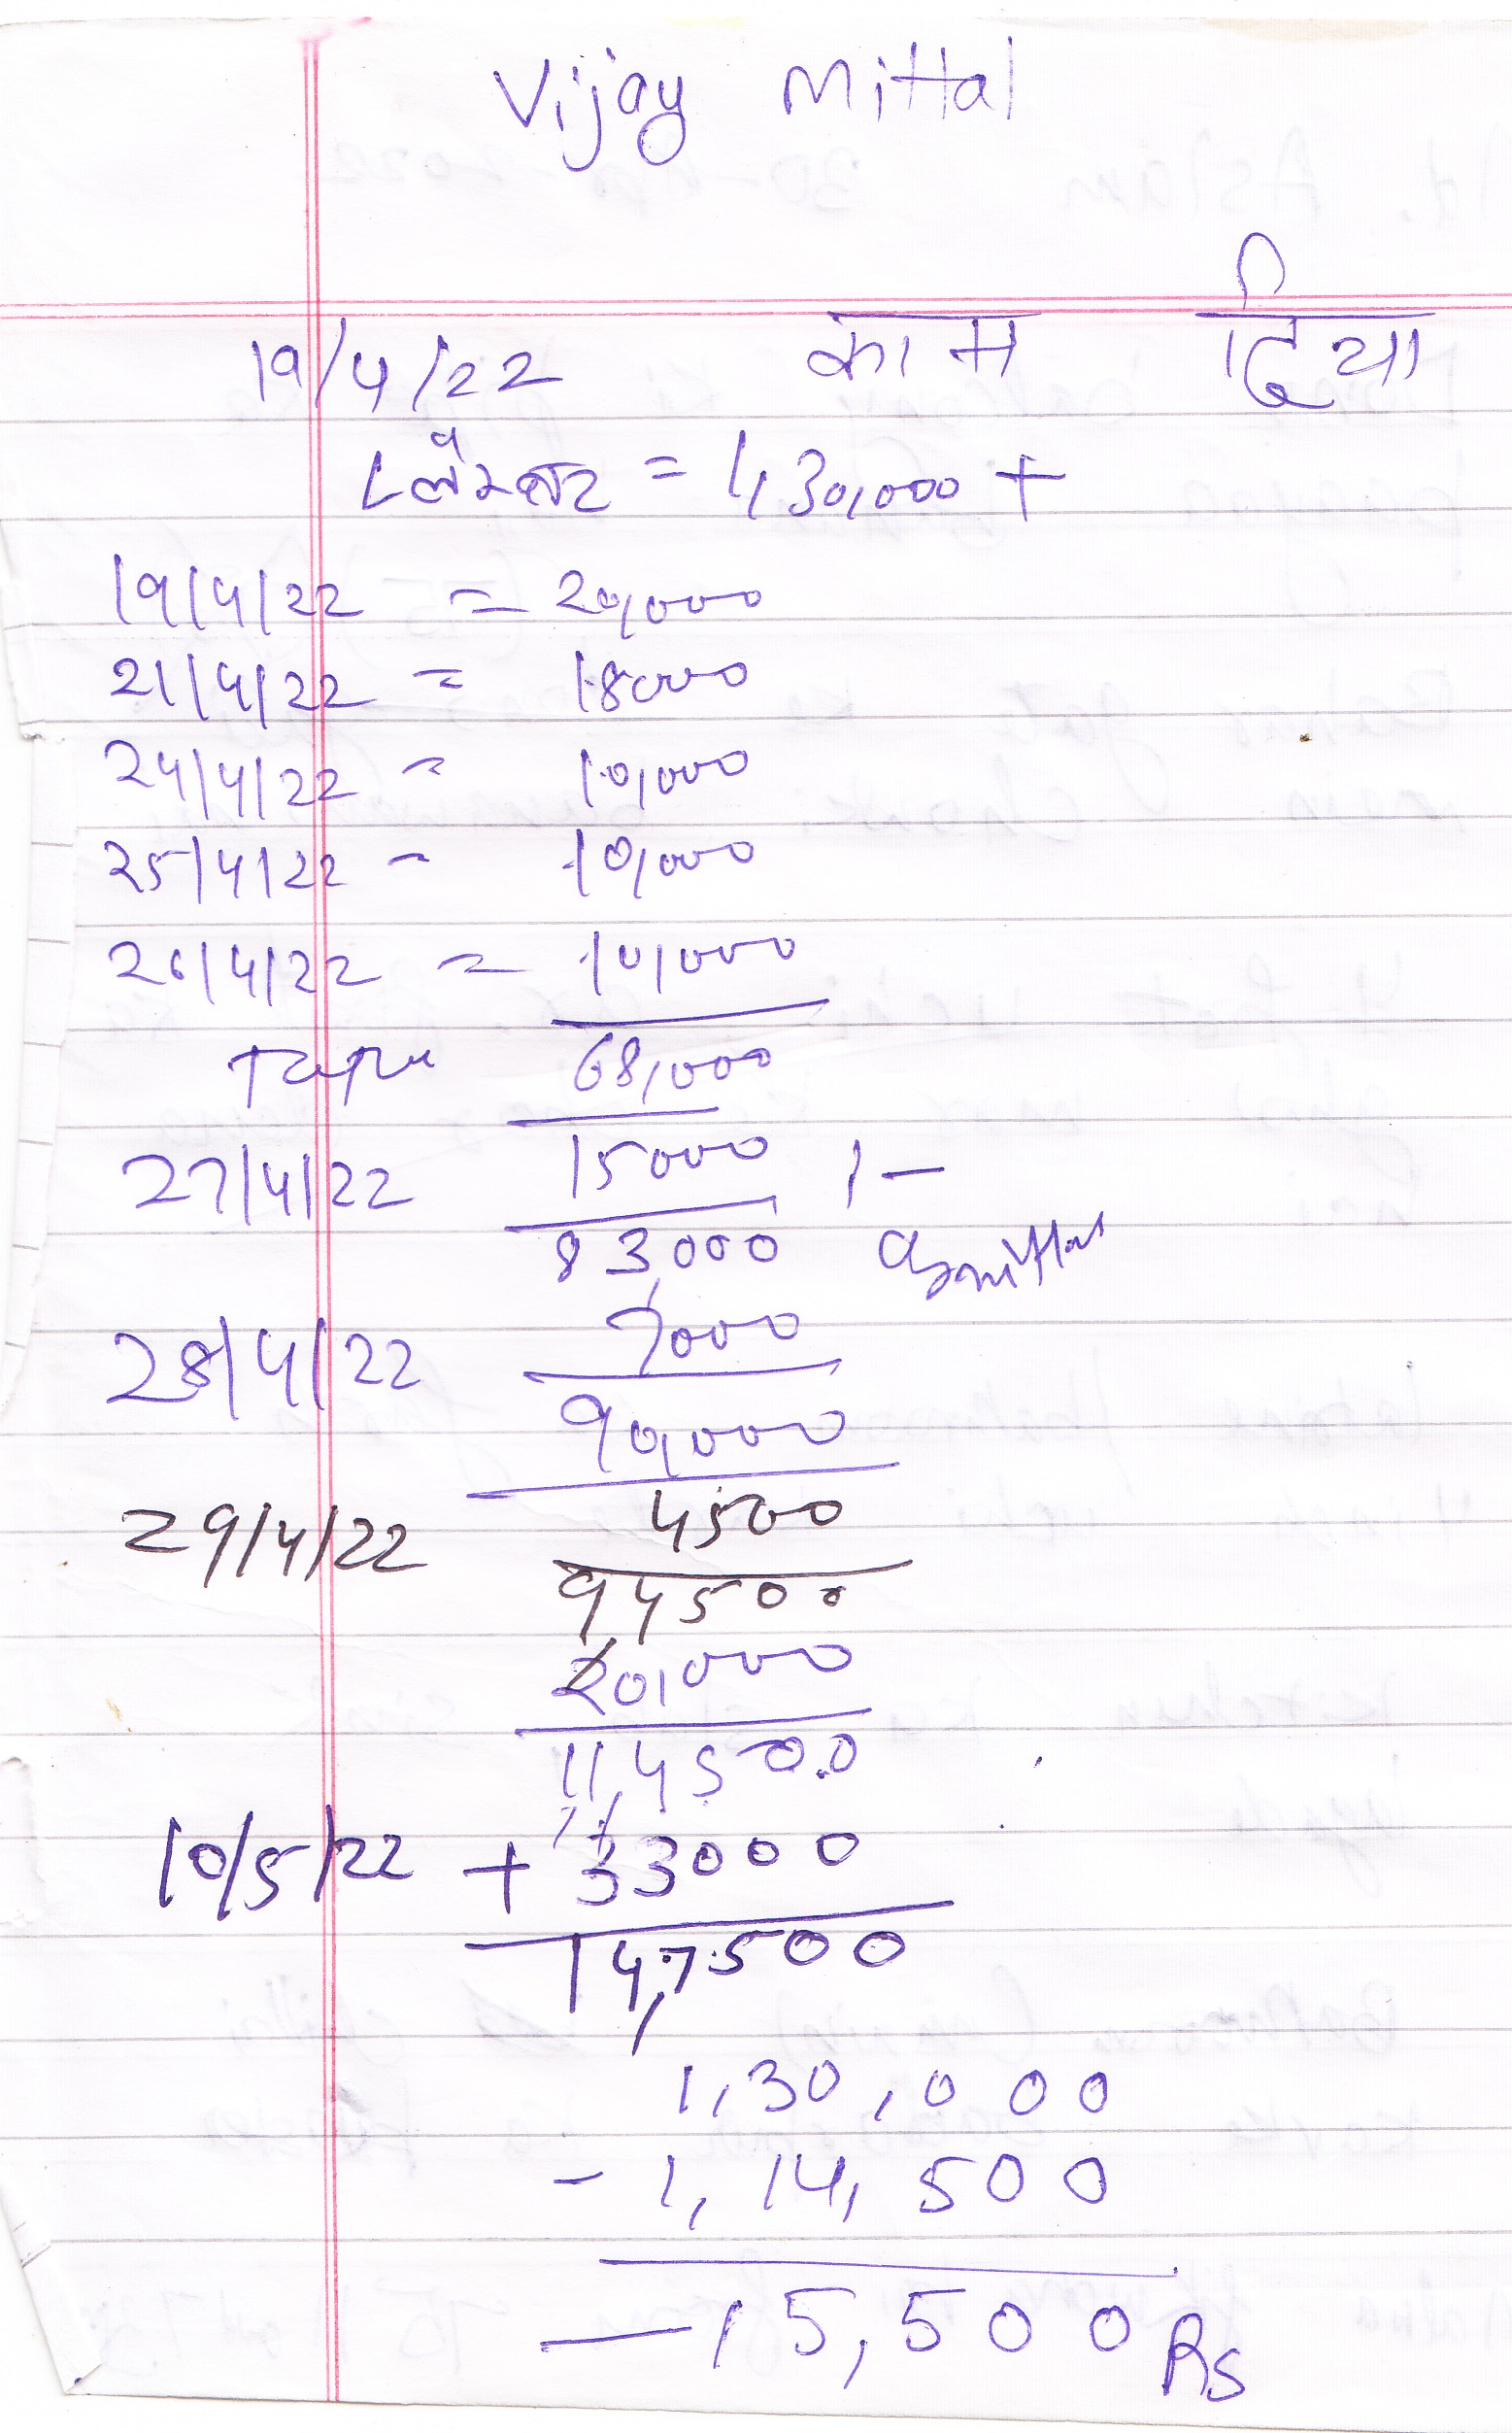 Vijay Mittal
19/4/22 काम दिया
= 1,30,000 +
19/4/22 = 20,000
21/4/22 = 18000
24/4/22 = 10,000
25/4/22 - 10,000
26/4/22 = 10,000
68,000
27/4/22 15000 /-
83,000
28/4/22 7000
90,000
29/4/22 4500
94500
20,000
114500
10/5/22 + 33000
147500
1,30,000
- 1,14,500
— 15,500 Rs